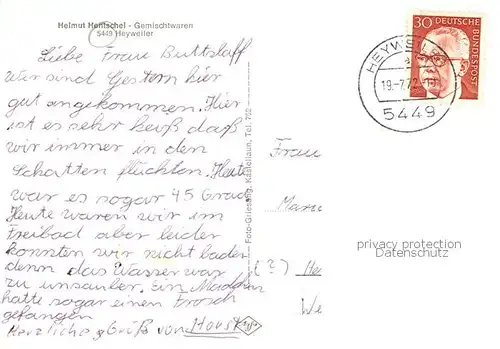 Helmut Hentschel - Gemischtwaren
5449 Heyweiler
Liebe Frau Buttslaff
wir sind Gestern hier
gut angekommen. Hier
ist es sehr heiß daß
wir immer in den
Schatten flüchten. Heute
war es sogar 45 Grad
Heute waren wir im
Freibad aber leider
konnten wir nicht baden
denn das Wasser war
zu unsauber. Ein Mädchen
hatte sogar einen Frosch
gefangen
Herzliche Grüß von Horst
Foto-Griesang, Kastellaun, Tel. 752
30 DEUTSCHE BUNDESPOST
HEYWEILER
19.-7.72
5449
Frau
(?)
privacy protection
Datenschutz